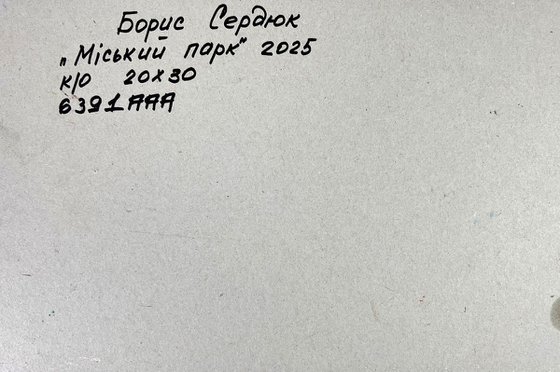 Борис Сердюк
„Міський парк" 2025
к/о 20х30
6391ААА